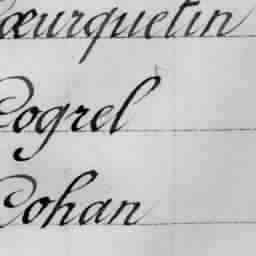 Cœurquetin
Cogrel
Cohan